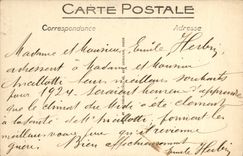 CARTE POSTALE
Correspondance Adresse
Madame et Monsieur Emile Herbin
adressent à Madame et Monsieur
leurs meilleurs souhaits
pour 1924. Seraient heureux d'apprendre
que le climat du Midi a été clément
à la santé de M. forment les
meilleurs voeux pour qu'il revienne
guéri. Bien affectueusement
Emile Herbin